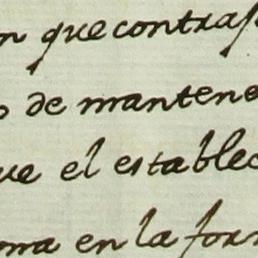 n que contras
o de mantene
ue el establec
oma en la for